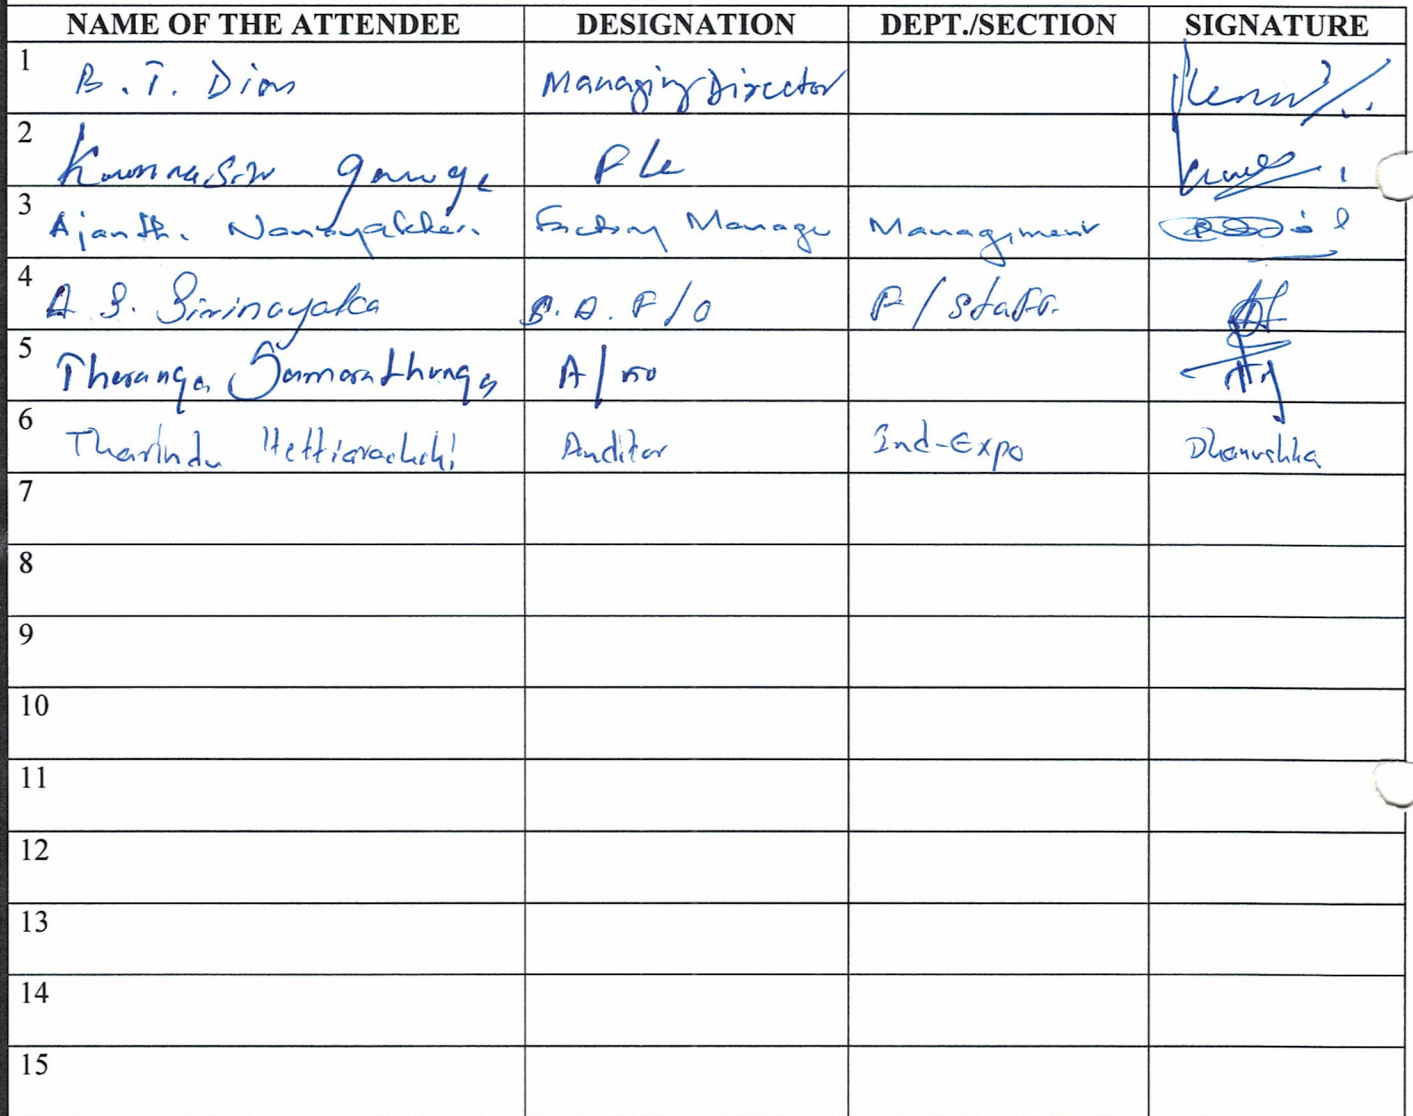 NAME OF THE ATTENDEE DESIGNATION DEPT./SECTION SIGNATURE
1 B. T. Dias Managing Director
2
3 Nanayakkara Factory Manager Management
4 A. S. Sirinayaka F/O F/Staff.
5 Tharanga Samarathunga
6 Tharindu Hettiarachchi Auditor Ind-Expo Dhanushka
7
8
9
10
11
12
13
14
15